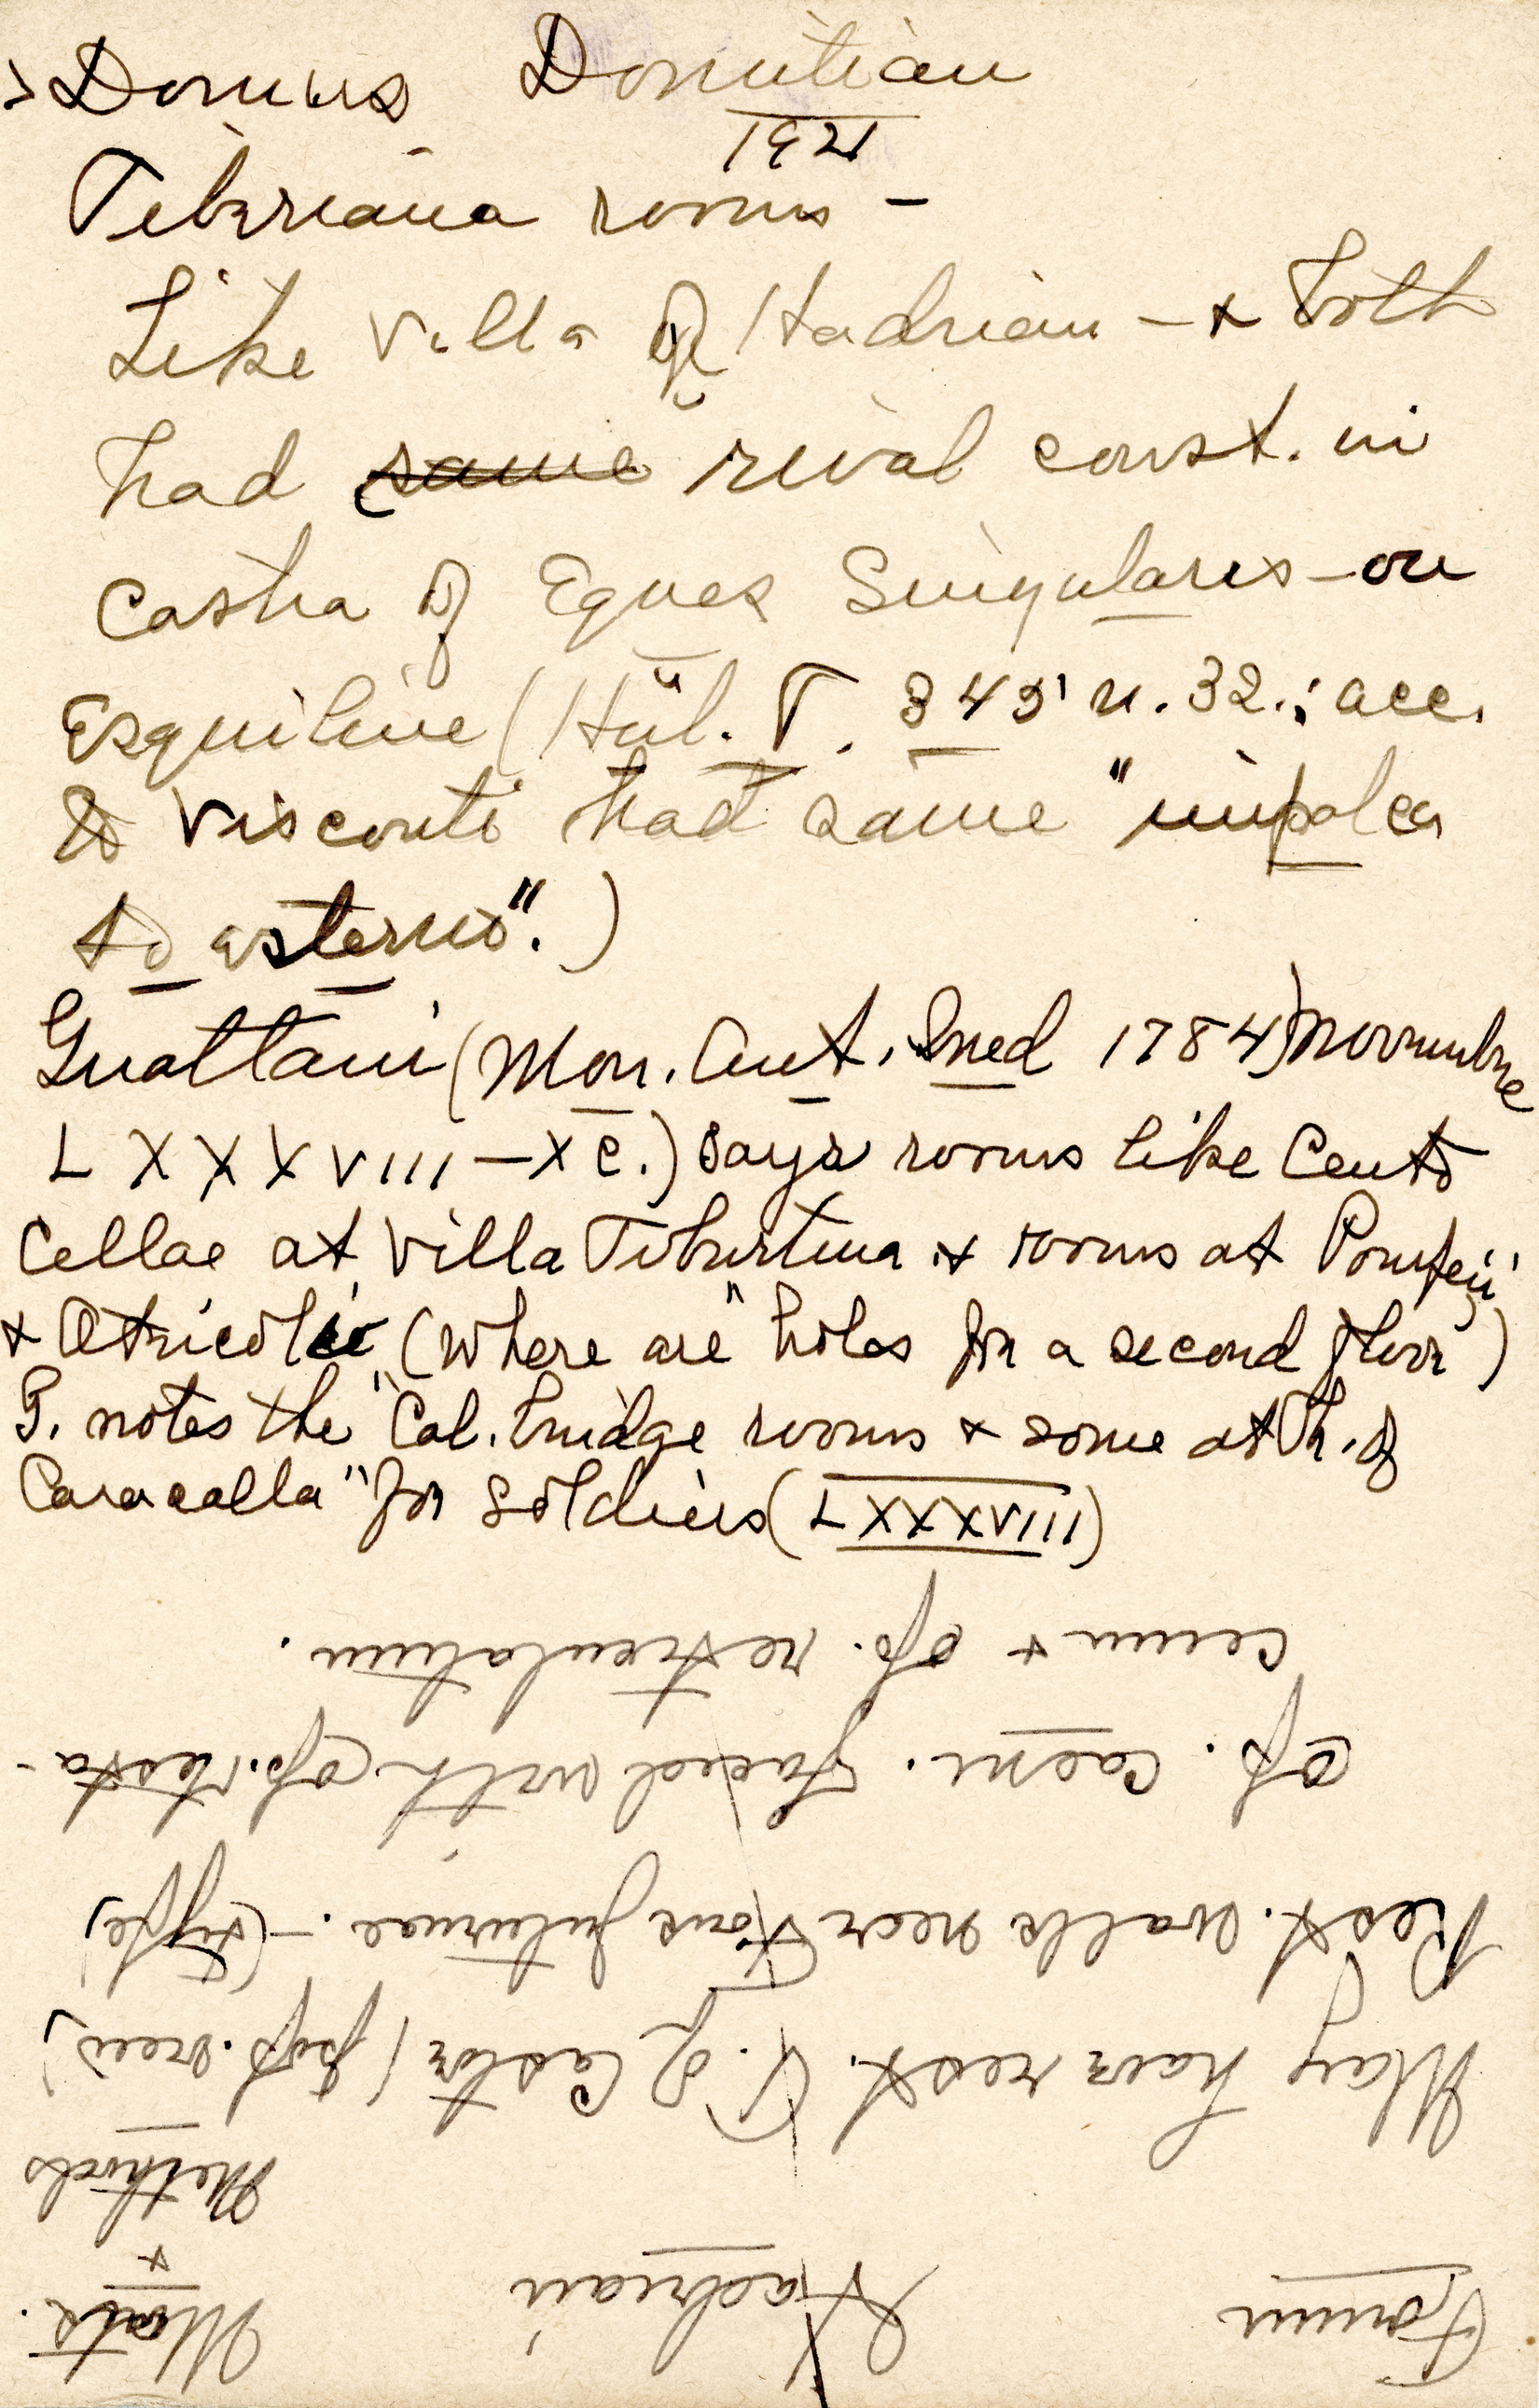 > Domus Domitian
1921
Tiberiana rooms -
Like Villa of Hadrian - + both
had same rival const. in
Castra of Eques Singulares - on
Esquiline (Hül. T. 345 n. 32.; acc.
to Visconti had same "impalca
to esterno".)
Guattani (Mon. Ant. Ined 1784) Novembre
LXXXVIII - XC.) says rooms like Cento
Cellae at Villa Tiburtina + rooms at Pompeii
+ Otricoli (where are "holes for a second floor")
G. notes the "Cal. bridge rooms + some at Th. of
Caracalla" for soldiers (LXXXVIII)
Forum Hadrian Mats.
+
Methods
May have rest. T. of Castor (pop. view)
Rest. walls near Fons Juturnae. - (type)
Op. caem. faced with op. testa-
ceum + op. reticulatum.